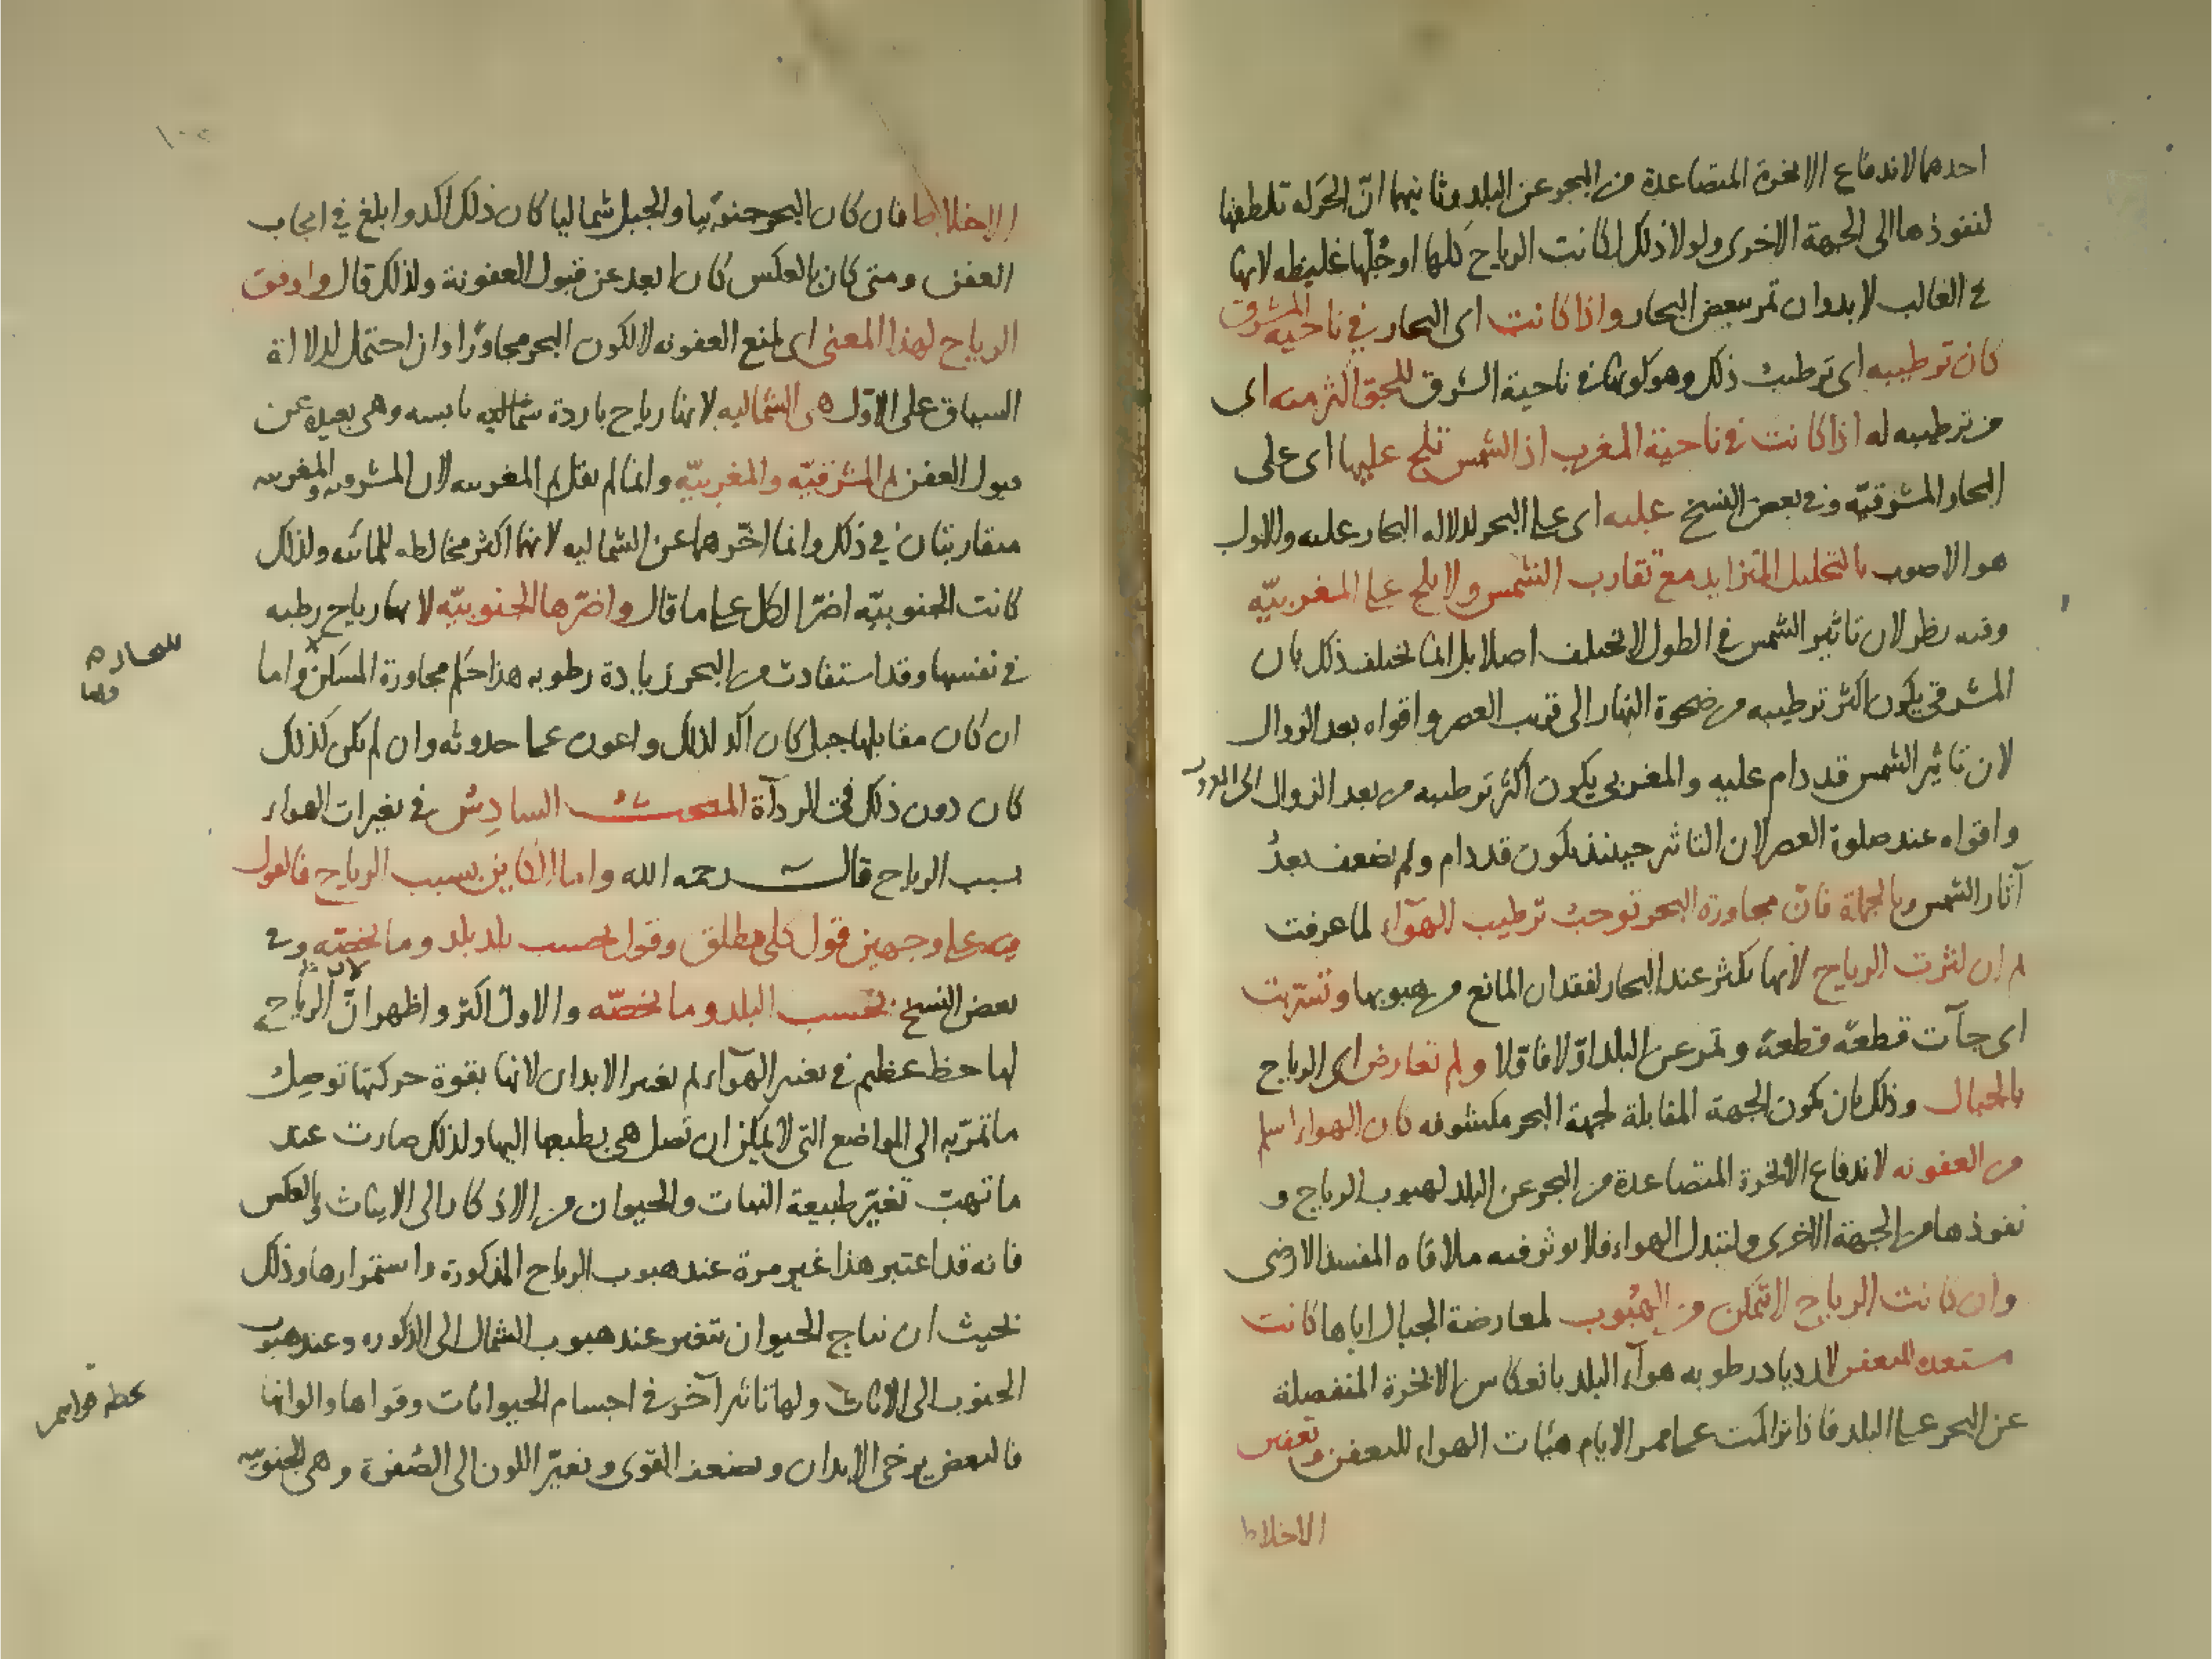 احدهما لاندفاع الابخرة المتصاعدة من البحر عن البلد وثانيهما ان الحركه تلطفها
لنفوذها الى الجهة الاخرى ولولا ذلك لكانت الرياح كلها او جلها غليظه لانها
فى الغالب لا بد وان تمر ببعض البحار واذا كانت اى البحار في ناحيه المشرق
كان ترطيبه اى ترطيب ذلك وهو كونها فى ناحية الشرق للجو اكثر منه اى
من ترطيبه له اذا كانت فى ناحية المغرب اذ الشمس تلح عليها اى على
البحار المشرقيّه وفى بعض النسخ عليه اى على البحر لدلاله البحار عليه والاول
هو الاصوب بالتحليل المتزايد مع تقارب الشمس ولا يلح على المغربيّه
وفيه نظر لان تاثير الشمس فى الطول لا يختلف اصلا بل انما يختلف ذلك بان
المشرقى يكون اكثر ترطيبه من ضحوة النهار الى قريب العصر واقواه بعد الزوال
لان تاثير الشمس قد دام عليه والمغربى يكون اكثر ترطيبه من بعد الزوال الى الغروب
واقواه عند صلوة العصر لان التاثير حينئذ يكون قد دام ولم يضعف بعدُ
آثار الشمس وبالجملة فانّ مجاورة البحر توجب ترطيب الهوآء لما عرفت
ثم ان كثرت الرياح لانها تكثر عند البحار لفقدان المانع من هبوبها وتسربت
اى جآت قطعة قطعة وتمر عن البلد اوّلا فاوّلا ولم تعارض اى الرياح
بالجبال وذلك بان يكون الجهة المقابلة لجهة البحر مكشوفه كان الهواء اسلم
من العفونه لاندفاع الابخرة المتصاعدة من البحر عن البلد لهبوب الرياح و
نفوذها من الجهة الاخرى ولتبدل الهواء فلا يوثر فيه ملاقاه المفسد الارضى
وان كانت الرياح لا تتمكن من الهُبوب لمعارضة الجبال اياها كانت
مستعده للتعفن لازدياد رطوبه هوآء البلد بانعكاس الابخرة المنفصلة
عن البحر على البلد فاذا تراكمت على ممر الايام هيّات الهواء للتعفن وتعفين
الاخلاط
الاخلاط فان كان البحر جنوبيا والجبل شماليا كان ذلك اكد وابلغ فى ايجاب
العفن ومتى كان بالعكس كان ابعد عن قبول العفونة ولذلك قال واوفق
الرياح لهذا المعنى اى لمنع العفونه لا لكون البحر مجاورًا وان احتمل لدلالة
السياق على الاوّل هى الشماليه لانها رياح باردة شماليه يابسه وهى بعيدة عن
قبول العفن ثم المشرقيّه والمغربيّه وانما لم يقل ثم المغربيه لان المشرقيه والمغربيه
متقاربتان فى ذلك وانما اخّرهما عن الشماليه لانهما اكثر مخالطه للمائيه ولذلك
كانت الجنوبيّه اضرّ الكل على ما قال واضرّها الجنوبيّه لانها رياح رطبه
فى نفسها وقد استفادت من البحر زيادة رطوبه هذا حكم مجاورة المسكن واما
ان كان مقابلها جبل كان اكد لذلك واعون على حدوثه وان لم يكن كذلك
كان دون ذلك فى الردآة المبحث السادِسُ فى تغيرات الهواء
بسبب الرياح قال رحمه الله واما الكاين بسبب الرياح فالقول
فيه على وجهين قول كلى مطلق وقول بحسب بلد بلد وما يخصّه وفى
بعض النسخ بحسب البلد وما يخصّه والاول اكثر واظهر انّ الرياح
لها حظ عظيم فى تغير الهوآء ثم تغير الابدان لانها بقوة حركتها توصِلُ
ما تمرّ به الى المواضع التى لا يمكن ان تصل هى بطبعها اليها ولذلك صارت عند
ما تهبّ تغيّر طبيعة النبات والحيوان من الاذكار الى الايناث وبالعكس
فانه قد اعتبر هذا غير مرة عند هبوب الرياح المذكورة واستمرارها وذلك
بحيث ان نتاج الحيوان تتغير عند هبوب الشمال الى الذكوره وعند هبوب
الجنوب الى الاناث ولها تاثير آخر فى اجسام الحيوانات وقواها والوانها
فالبعض يرخى الابدان ويضعف القوى ويغيّر اللون الى الصُفرة وهى الجنوبيّه